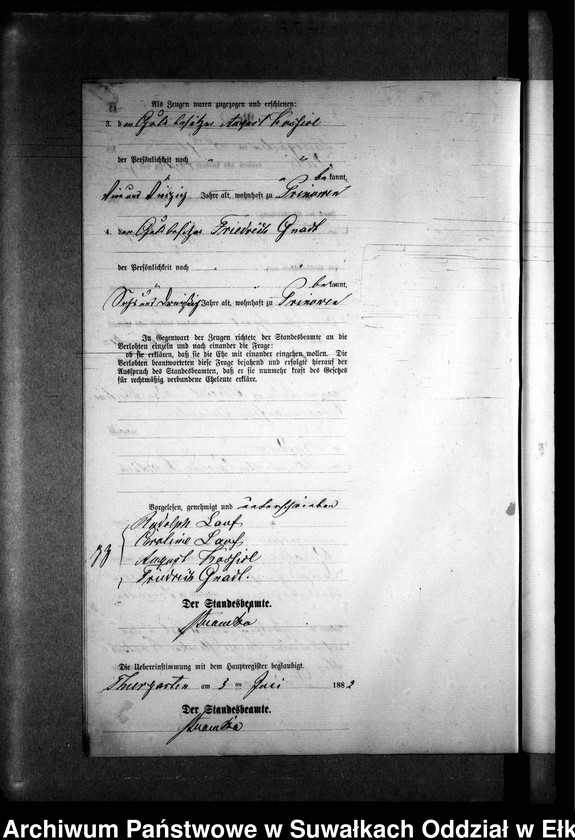 Als Zeugen waren zugezogen und erschienen:
3. der Gutsbesitzer August
der Persönlichkeit nach
be kannt,
Vier und Dreißig Jahre alt, wohnhaft zu Prinowen
4. der Gutsbesitzer Friedrich Gnadt
der Persönlichkeit nach
be kannt,
Sechs und dreißig Jahre alt, wohnhaft zu Prinowen
In Gegenwart der Zeugen richtete der Standesbeamte an die
Verlobten einzeln und nach einander die Frage:
ob sie erklären, daß sie die Ehe mit einander eingehen wollen. Die
Verlobten beantworteten diese Frage bejahend und erfolgte hierauf der
Ausspruch des Standesbeamten, daß er sie nunmehr kraft des Gesetzes
für rechtmäßig verbundene Eheleute erkläre.
Vorgelesen, genehmigt und unterschrieben
Rudolph
Caroline
August
Friedrich Gnadt.
Der Standesbeamte.
Die Uebereinstimmung mit dem Hauptregister beglaubigt.
Thiergarten am 3 ten Juni 1882
Der Standesbeamte.
Archiwum Państwowe w Suwałkach Oddział w Ełk